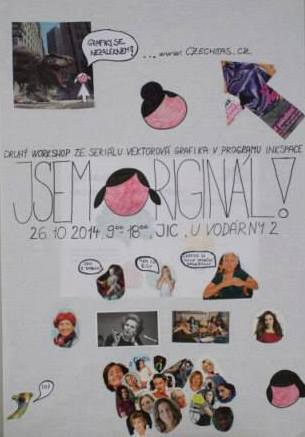 GRAFIKY SE
NEZALEKNEM!
... www.CZECHITAS.CZ
DRUHÝ WORKSHOP ZE SERIÁLU VEKTOROVÁ GRAFIKA V PROGRAMU INKSPACE
JSEM ORIGINÁL!
26.10.2014, 9⁰⁰-18⁰⁰, JIC, U VODÁRNY 2